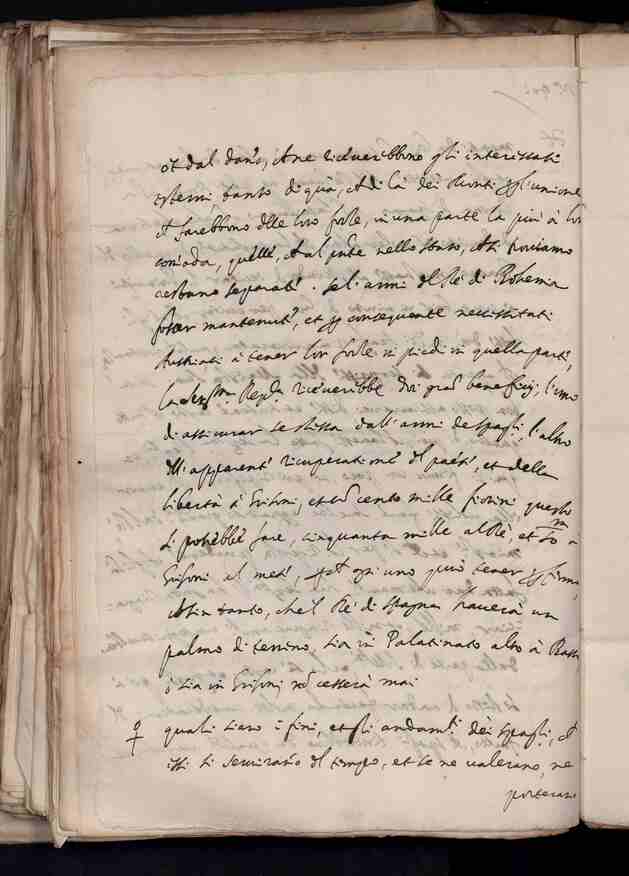 et dal danno, che ne riceverebbono gli interessati
esterni tanto di quà, che di là dei Monti per l'unione
che farebbono delle loro forze, in una parte la più à lor
comoda, quelle, che al presente nello stesso, che troviamo
separate. Se l'armi del Rè di Bohemia
fosser mantenute, et per consequente necessitati
Austriaci à tener lor forze in piedi in quella parte,
la Ser.ma Rep.ca riceverebbe doi gran beneficij, l'uno
di assicurar se stessa dall'armi de Spag.li, l'altro
dell'apparente ricuperatione del paese, et della
libertà à Grisoni, et con cento mille fiorini questo
si potrebbe fare, cinquanta mille al Rè, et
Grisoni al mese, ogni uno può tener per fermo
che in tanto, che'l Rè di Spagna haverà un
palmo di terreno, sia in Palatinato alto ò Basso
ò sia in Grisoni, non cesserà mai
quali siano i fini, et gli andam.ti dei Spag.li, et
essi si serviranno del tempo, et se ne valerano, ne
porterano